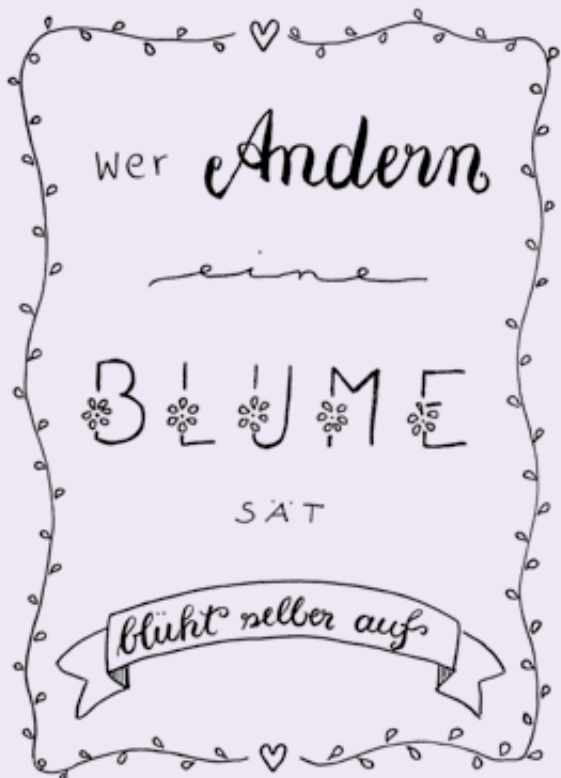 wer Andern
eine
BLUME
SÄT
blüht selber auf